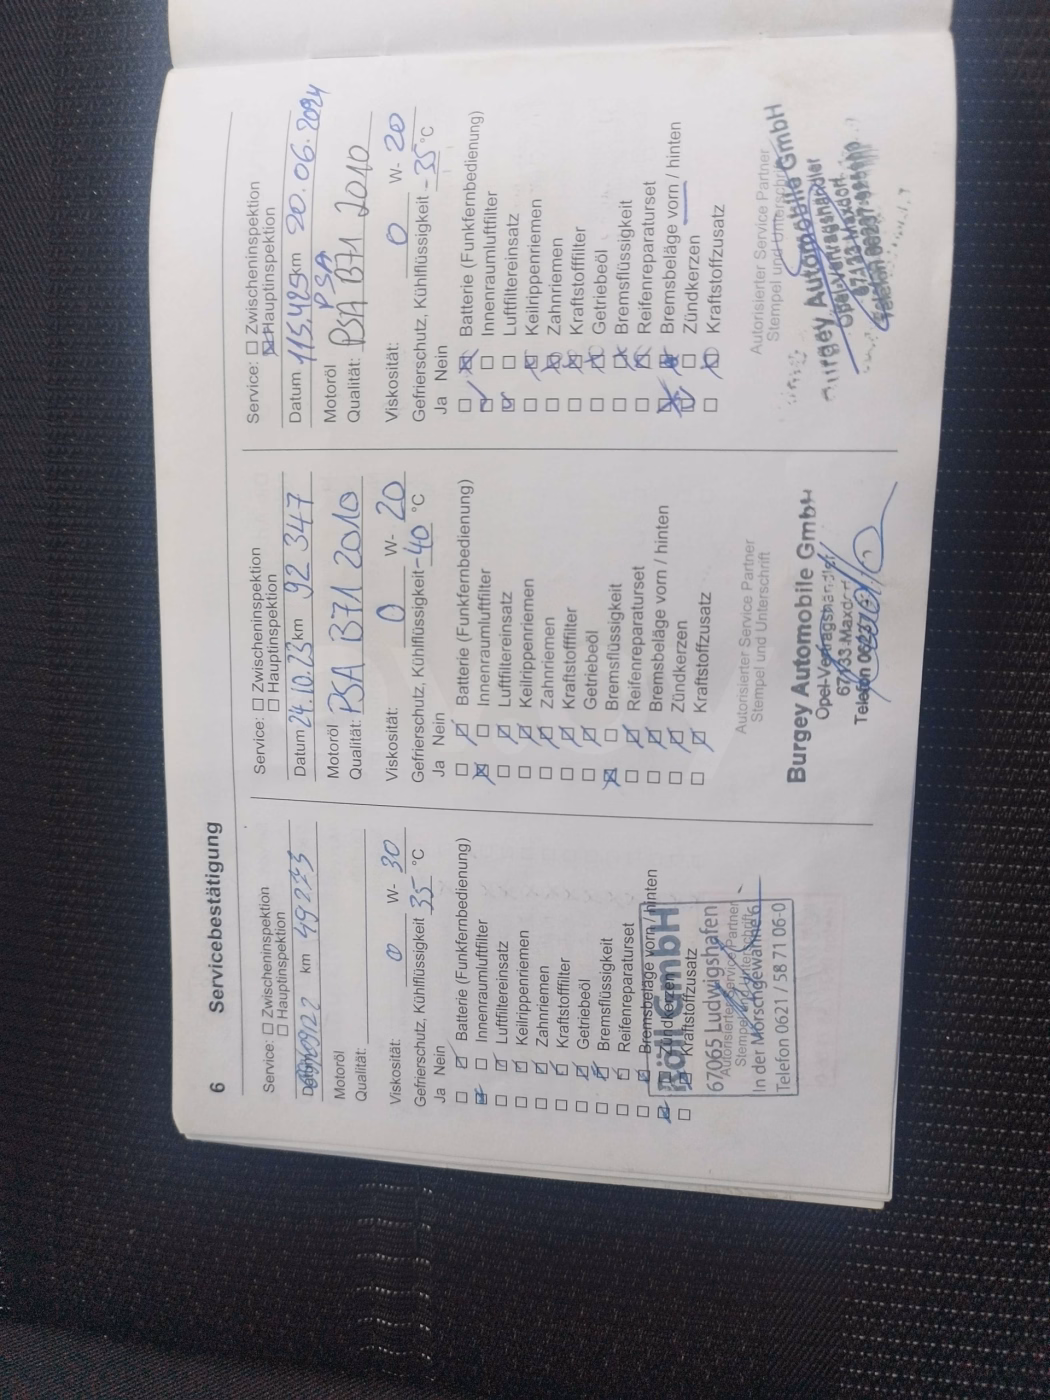 6 Servicebestätigung
Service: ☐ Zwischeninspektion
☐ Hauptinspektion
km 49273
Motoröl
Qualität:
Viskosität: 0 W- 30
Gefrierschutz, Kühlflüssigkeit 35 °C
Ja Nein
Batterie (Funkfernbedienung)
Innenraumluftfilter
Luftfiltereinsatz
Keilrippenriemen
Zahnriemen
Kraftstofffilter
Getriebeöl
Bremsflüssigkeit
Reifenreparaturset
Bremsbeläge vorn / hinten
Zündkerzen
Kraftstoffzusatz
GmbH
67065 Ludwigshafen
Autorisierter Service Partner
In der Mörschgewanne
Telefon 0621 / 58 71 06-0
Service: ☐ Zwischeninspektion
☐ Hauptinspektion
Datum 24.10.23 km 92 347
Motoröl
Qualität: PSA B71 2010
Viskosität: 0 W- 20
Gefrierschutz, Kühlflüssigkeit -40 °C
Ja Nein
Batterie (Funkfernbedienung)
Innenraumluftfilter
Luftfiltereinsatz
Keilrippenriemen
Zahnriemen
Kraftstofffilter
Getriebeöl
Bremsflüssigkeit
Reifenreparaturset
Bremsbeläge vorn / hinten
Zündkerzen
Kraftstoffzusatz
Autorisierter Service Partner
Stempel und Unterschrift
Burgey Automobile GmbH
Opel-Vertragshändler
67133 Maxdorf
Telefon
Service: ☐ Zwischeninspektion
☒ Hauptinspektion
Datum 115.425 km 20.06.2024
Motoröl PSA
Qualität: PSA B71 2010
Viskosität: 0 W- 20
Gefrierschutz, Kühlflüssigkeit -35 °C
Ja Nein
Batterie (Funkfernbedienung)
Innenraumluftfilter
Luftfiltereinsatz
Keilrippenriemen
Zahnriemen
Kraftstofffilter
Getriebeöl
Bremsflüssigkeit
Reifenreparaturset
Bremsbeläge vorn / hinten
Zündkerzen
Kraftstoffzusatz
Autorisierter Service Partner
Stempel und Unterschrift
Burgey Automobile GmbH
Opel-Vertragshändler
67133 Maxdorf